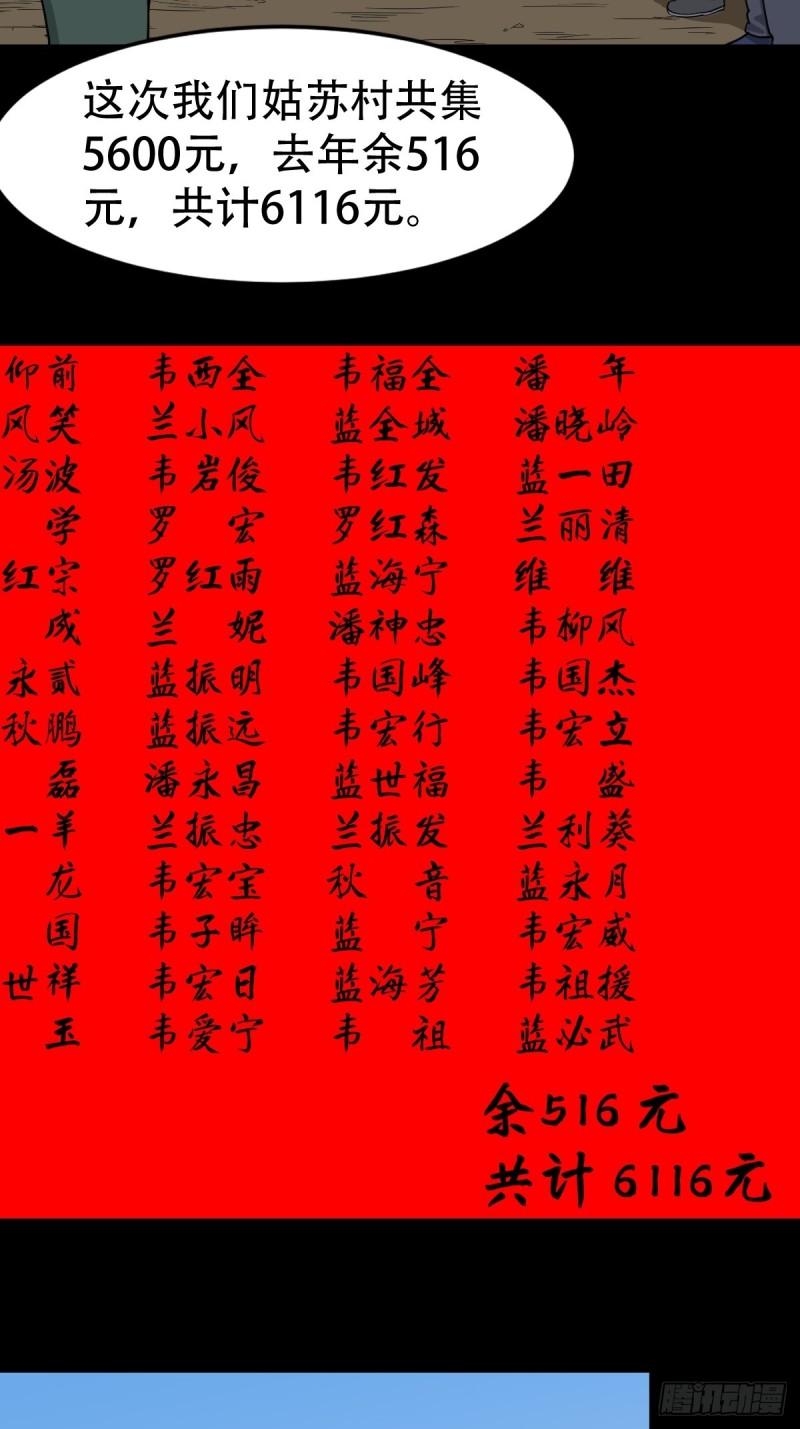 这次我们姑苏村共集
5600元，去年余516
元，共计6116元。
仰前 韦西全 韦福全 潘 年
风笑 兰小风 蓝全城 潘晓岭
汤波 韦岩俊 韦红发 蓝一田
学 罗 宏 罗红森 兰丽清
红宗 罗红雨 蓝海宁 维 维
成 兰 妮 潘神忠 韦柳风
永贰 蓝振明 韦国峰 韦国杰
秋鹏 蓝振远 韦宏行 韦宏立
磊 潘永昌 蓝世福 韦 盛
一羊 兰振忠 兰振发 兰利葵
龙 韦宏宝 秋 音 蓝永月
国 韦子眸 蓝 宁 韦宏威
世祥 韦宏日 蓝海芳 韦祖援
玉 韦爱宁 韦 祖 蓝必武
余516元
共计6116元
腾讯动漫